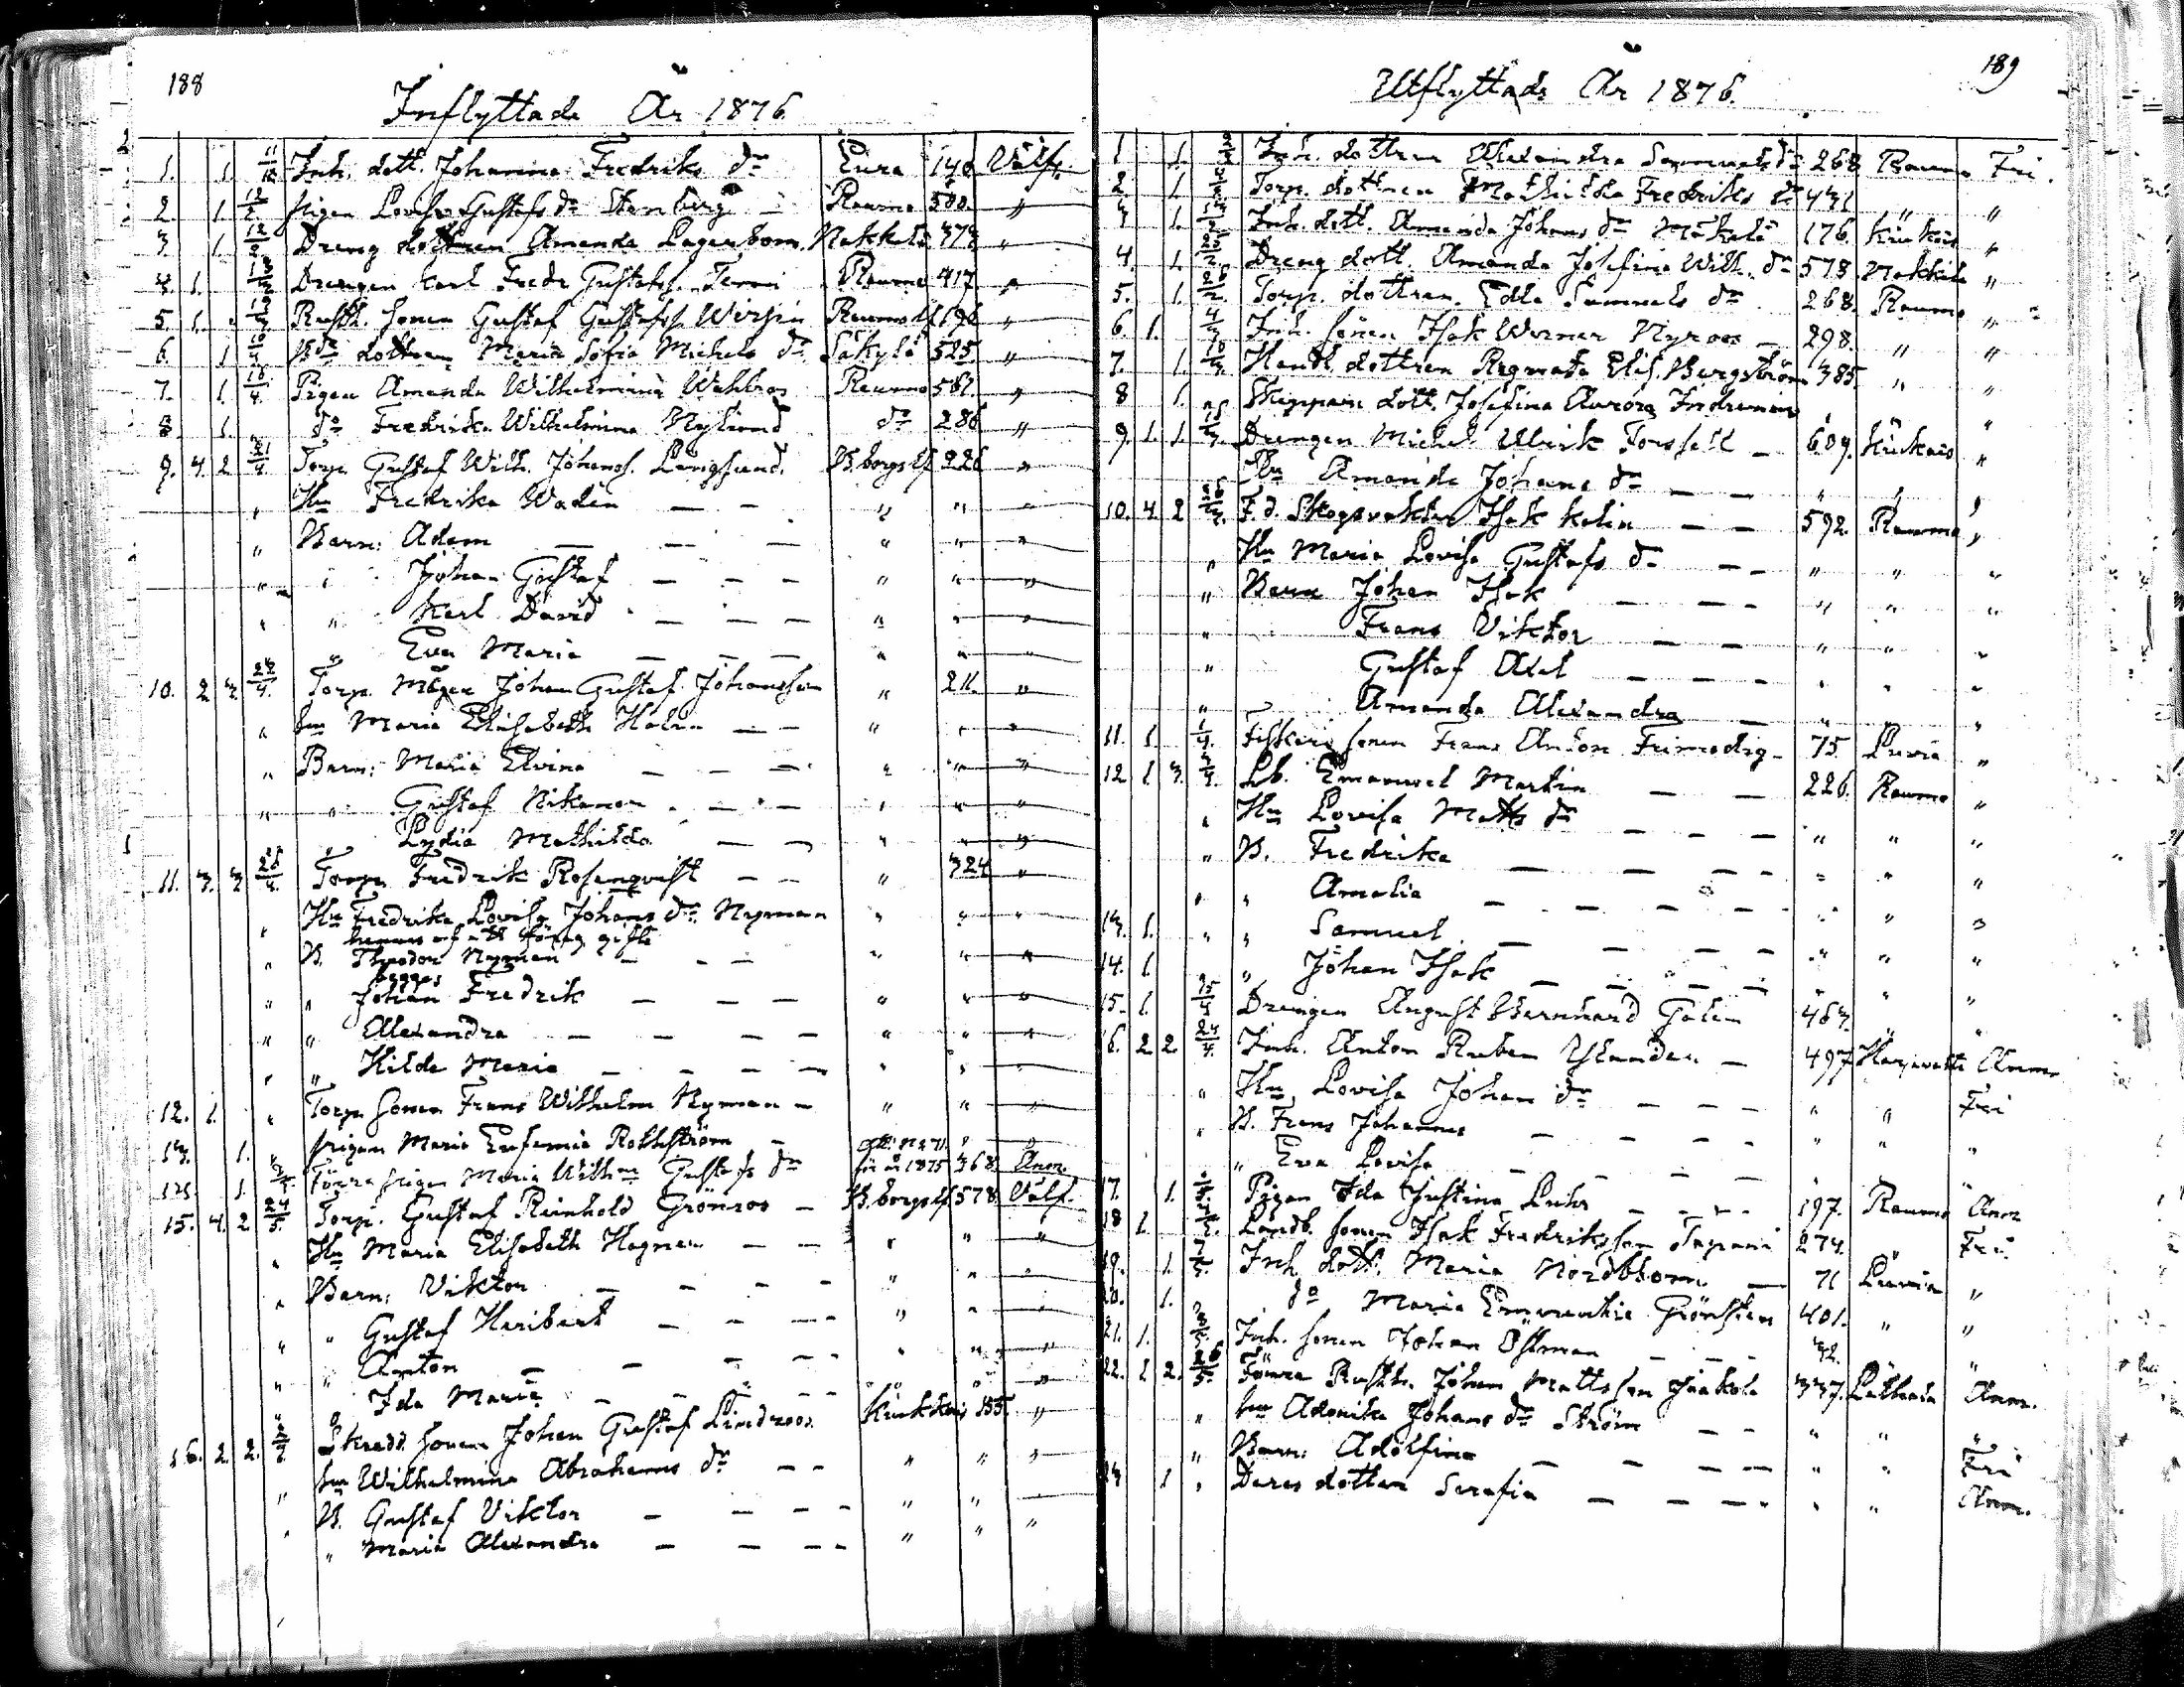 188
Inflyttade År 1876
1. 1. 11/12 Inh. dott. Johanna Fredriks dr Eura 140 Välf.
2. 1 12/2 Pigan Lovisa Gustafs dr Stenberg — Raumo 580. "
3. 1 12/2 Dreng dottren Amanda Lagerbom. Nakkila 373 "
4. 1. Drengen Karl Fredr Gustafss. Temmi Raumo 417 "
5. 1. Rusth. sonen Gustaf Gustafss. Raumo lf 196 "
6. 1 dottren Maria Sofia Michels dr Säkylä 525. "
7. 1. 18/4. Pigan Amanda Wilhelmina Wahlroos Raumo 587. "
8. 1. do Fredrika Wilhelmina Nylund do 286 "
9. 4. 2 21/4. Torp. Gustaf Wilh. Johanss. Långlund. B.borgs lf 226 "
" Hu Fredrika Wadén — — " " "
" Barn: Adam — — — " " "
" " Johan Gustaf — — — " " "
" " Karl David — — — " " "
" Eva Maria — — — " " "
10. 2 3. 24/4. Torp. Mågen Johan Gustaf Johansson " 211. "
" hu Maria Elisabeth Holm — — " " "
" Barn: Maria Elvina — — — " " "
" " Gustaf Nikanor — — " " "
" Lydia Mathilda — — " " "
11. 3. 3 25/4. Torp. Fredrik Rosenqvist — — " 324 "
" Hu Fredrika Lovisa Johans dr Nyman " " "
hennes af ett förra gifte
" B. Theodor Nyman — — — " " "
begges
" " Johan Fredrik — — — " " "
" " Alexandra — — — — " " "
" " Hilda Maria — — — — " " "
12. 1. " Torp. sonen Frans Wilhelm Nyman — " " "
13. 1. " Pigan Maria Eufemia Rothström — " "
1. Förra pigan Maria Wilhna Gustafs dr för år 1875 368. Anm.
15. 4. 2. 24/5. Torp. Gustaf Reinhold Grönroos — B.borgs lf 578. Välf.
" Hu Maria Elisabeth Hagner — — " " "
" Barn: Viktor — — — — " " "
" " Gustaf Heribert — — — " " "
" " Anton — — — — " " "
" Ida Maria — — — — " " "
16. 2. 2. Skredd. sonen Johan Gustaf Lindroos Kiukais 155. "
" hu Wilhelmina Abrahams dr — — " " "
" B. Gustaf Viktor — — — — " " "
" Maria Alexandra — — — — " "
189
Utflyttade År 1876.
1 1. Inh. dottren Alexandra Samuels dr 268 Raumo Fri.
2 1. Torp. dottren Mathilda Fredriks dr 431 " "
3 1. Inh. dott. Amanda Johans dr Mäkelä 176. Kiukais "
4. 1. Dreng dott. Amanda Josefina Wilh. dr 578 Nakkila "
5. 1. Torp. dottren. Edla Samuels dr 268. Raumo "
6. 1. Inh. sonen Isak Werner Nyroos — 298. " "
7. 1. Handl. dottren Regnata Elis. Bergström 385. " "
8 1. Skeppare dott. Josefina Aurora "
9. 1. 1. Drengen Michel Ulrik Forssell — 609. Kiukais "
Hu Amanda Johans dr — — " " "
10. 4. 2 F. d. Skogsvaktar Isak Kalin — — 592. Raumo "
" Hu Maria Lovisa Gustafs dr — — " " "
" Barn Johan Isak — — — " " "
" Frans Viktor — — " " "
" Gustaf Axel — — — " " "
" Amanda Alexandra — " " "
11. 1. 1/4. Fiskare sonen Frans Anton Frimodig — 75 Luvia "
12. 1 3. Lb. Emanuel Martin — — 226. Raumo "
" Hu Lovisa Matts dr — — — " " "
" B. Fredrika — — — — " " "
" " Amalia — — — — " " "
13. 1. " " Samuel — — — — " " "
14. 1 " Johan Isak — — — — " " "
15. 1. Drengen August Bernhard Galin 463. " "
16. 2 2. 24/4. Inh. Anton Ruben — 497 Harjavalta Anm.
" Hu Lovisa Johans dr — — — " " Fri
" B. Frans Johannes — — — — " " "
" Eva Lovisa — — — — " " "
17. 1. Pigan Ida Justina Luhr — — — 197. Raumo Anm
18 1. Landb. sonen Isak Fredriksson 274. Fri.
19. 1. Inh. dott. Maria Nordblom — 71 Luvia "
20. 1. do Maria Grönsten 401. " "
21. 1. Inh. sonen Johan Östman — — — 42. "
22. 1 2. 26/5. Förra Rusth. Johan Mattsson Jaakola 337. Anm.
" hu Johans dr Ström — — " " "
" Barn: Adolfina — — — — " " Fri
23 1 " Deras dotter Serafia — — — — " " Anm.